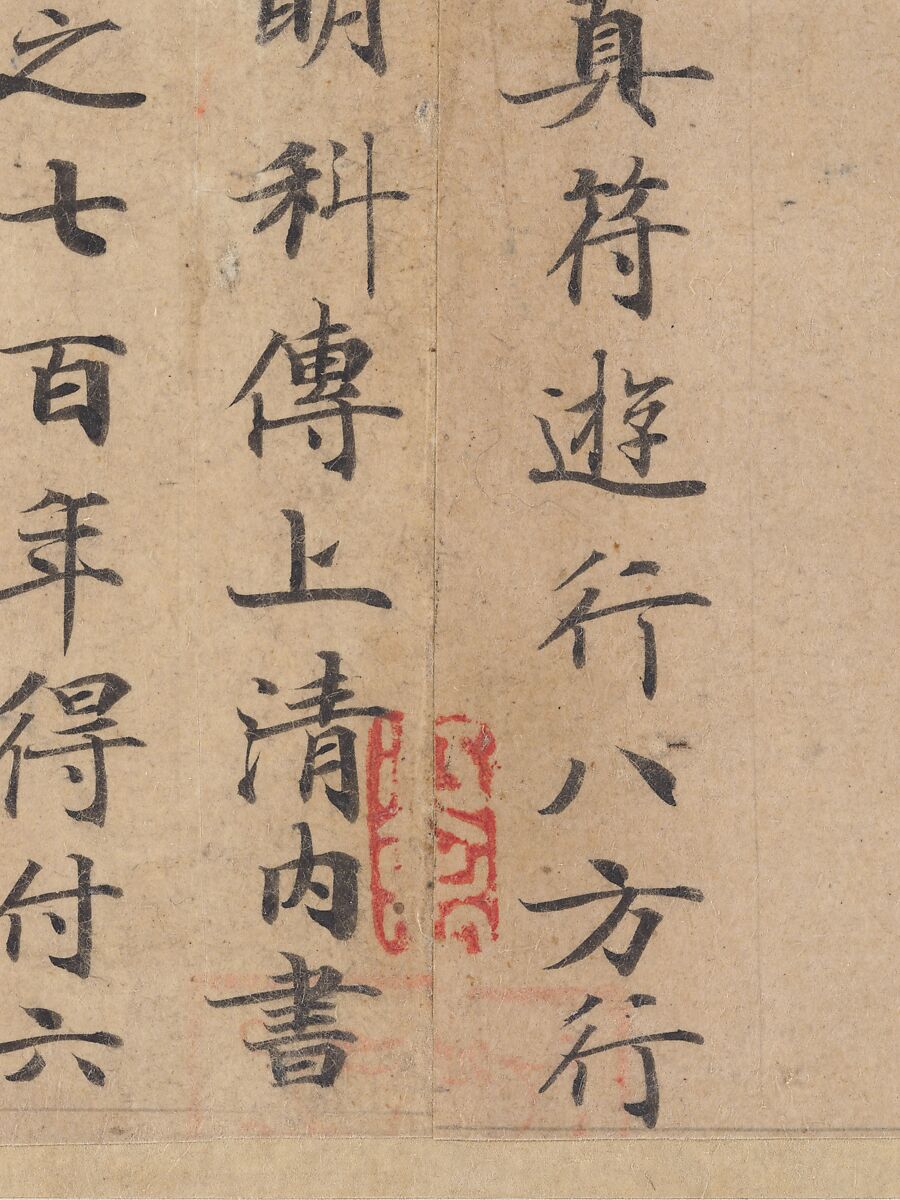 真符遊行八方行
明科傳上清内書
之七百年得付六